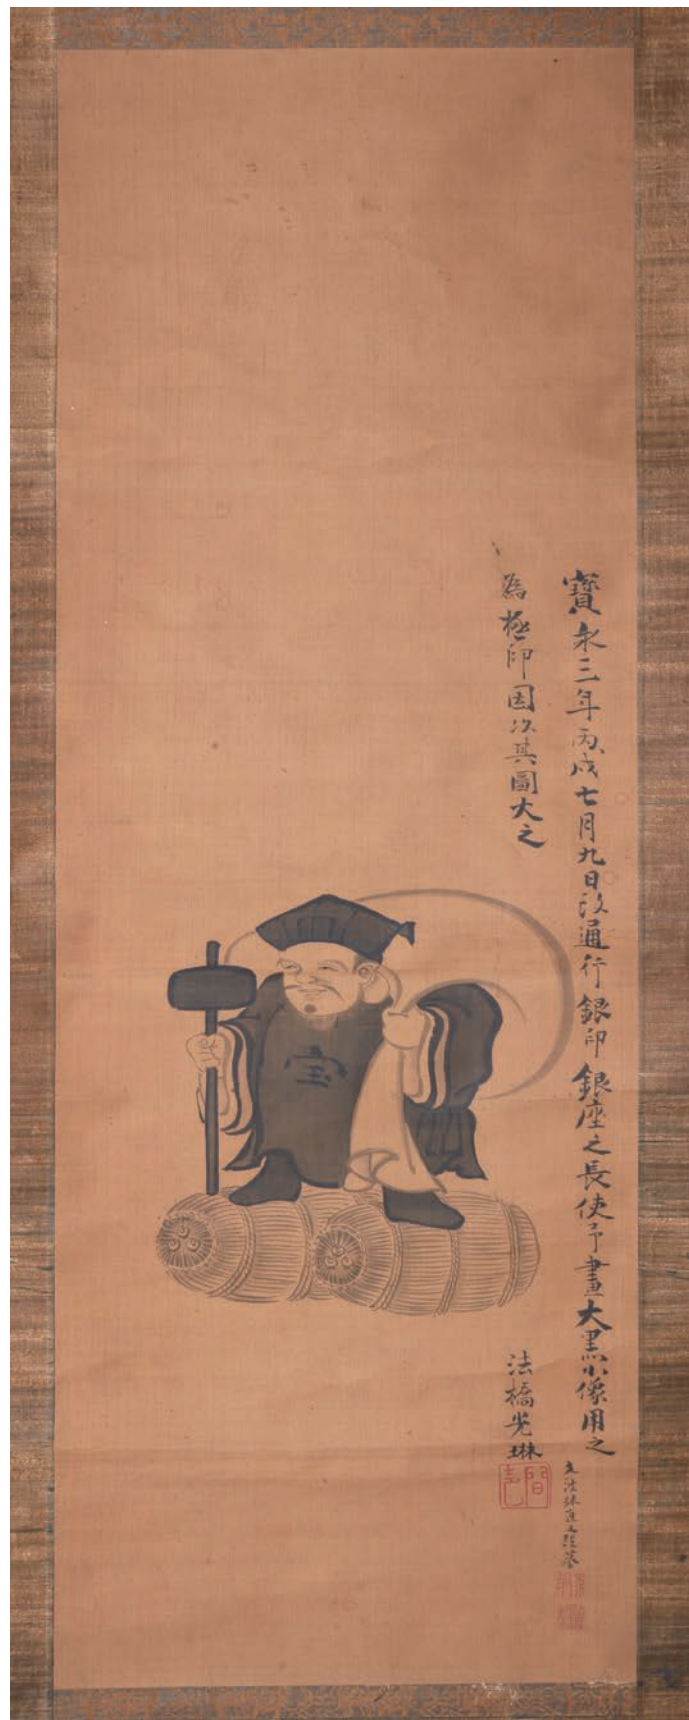 寶永三年丙戌七月九日改通行銀印銀座之長使予畫大黑小像用之
為極印因以其圖大之
法橋光琳
宝